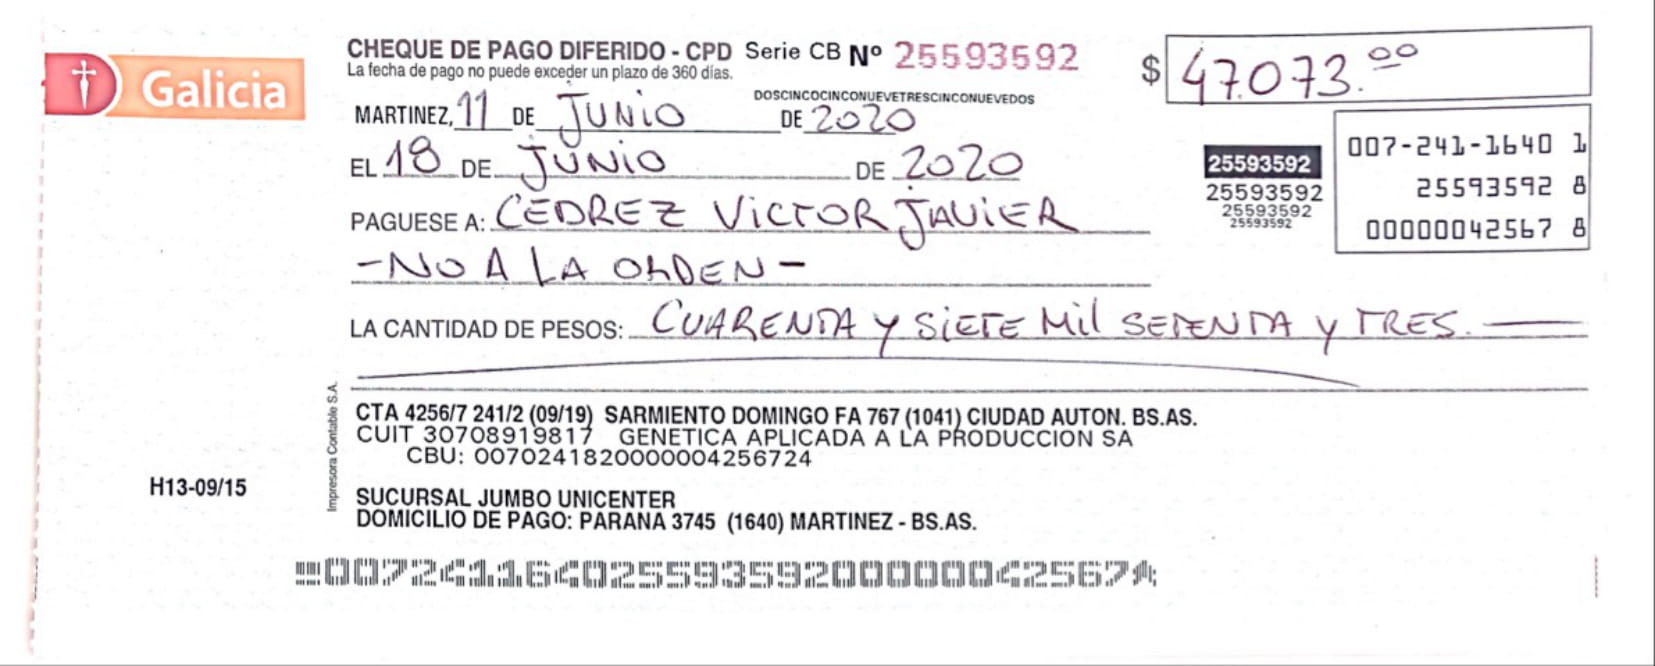 Galicia
CHEQUE DE PAGO DIFERIDO - CPD Serie CB Nº 25593592
La fecha de pago no puede exceder un plazo de 360 días.
$ 47.073.00
DOSCINCOCINCONUEVETRESCINCONUEVEDOS
MARTINEZ, 11 DE JUNIO DE 2020
EL 18 DE JUNIO DE 2020
25593592
25593592
25593592
25593592
007-241-1640 1
25593592 8
00000042567 8
PAGUESE A: CEDREZ VICTOR JAVIER
-NO A LA ORDEN-
LA CANTIDAD DE PESOS: CUARENTA Y SIETE MIL SETENTA Y TRES.
Impresora Contable S.A.
CTA 4256/7 241/2 (09/19) SARMIENTO DOMINGO FA 767 (1041) CIUDAD AUTON. BS.AS.
CUIT 30708919817 GENETICA APLICADA A LA PRODUCCION SA
CBU: 0070241820000004256724
H13-09/15
SUCURSAL JUMBO UNICENTER
DOMICILIO DE PAGO: PARANA 3745 (1640) MARTINEZ - BS.AS.
00724116402559359200000042567